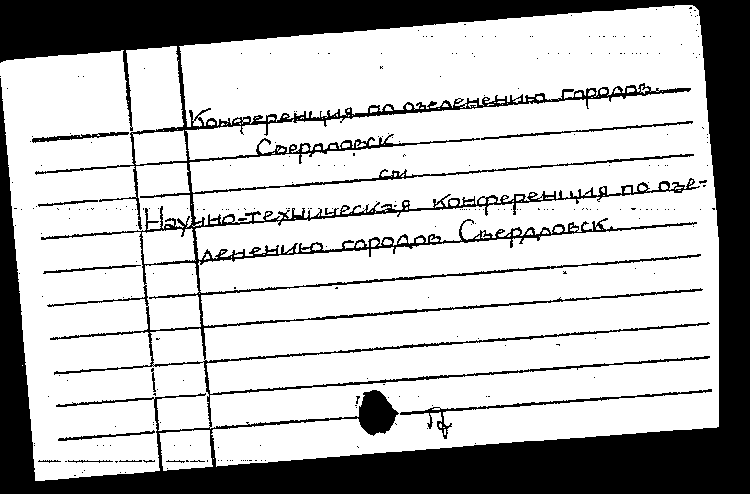 Конференция по озеленению городов.
Свердловск.
см.
Научно-техническая конференция по озе-
ленению городов. Свердловск.